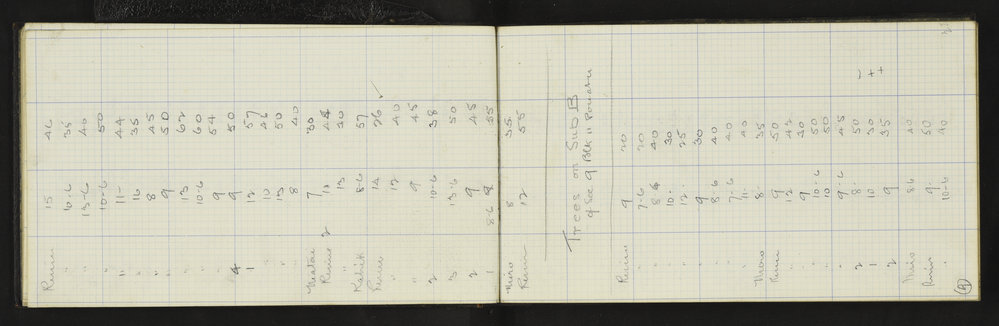 Rimu 15 40
" 35
" 13-6 40
" 10-6 50
" 11- 44
" 16 35
" 8 45
" 9 50
" 13 62
" 10-6 60
" 9 54
4 " 9 50
1 " 12 57
" 10 46
" 13 50
" 8 40
Matai 7 30
Rimu 2
" 13
Kahik 8-6 57
Rimu 14 26 ✓
" 12 40
" 9 45
2 10-6 38
3 13-6 50
2 9 45
1 8-6 55
Miro 8 35
Rimu 12 55
Trees on Sub B
of Sec 9 Blk 11
Rimu 9 20
" 7-6 20
" 8 40
" 10- 30
" 12- 25
" 9 30
" 8-6 40
" 7-6 40
" 11- 40
Miro 8- 35
Rimu 9 50
" 12 42
" 9 30
" 10-6 50
" 10 50
" 9-6 45
2 8- 50 -
1 10 30 +
2 9 35 +
Miro 8-6 40
Rimu 9- 50
" 10-6 40